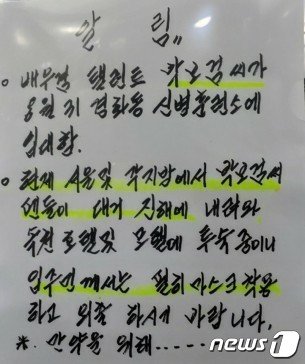 알 림"
○ 배우겸 탤런트 박보검씨가
8월 31 경화동 신병훈련소에
입대함.
○ 현재 서울및 각지방에서 박보검씨
팬들이 대거 진해에 내려와
호텔및 모텔에 투숙중이니
입주민께서는 필히 마스크 착용
하고 외출 하시기 바랍니다.
※. 만약을 위해-----
뉴스1